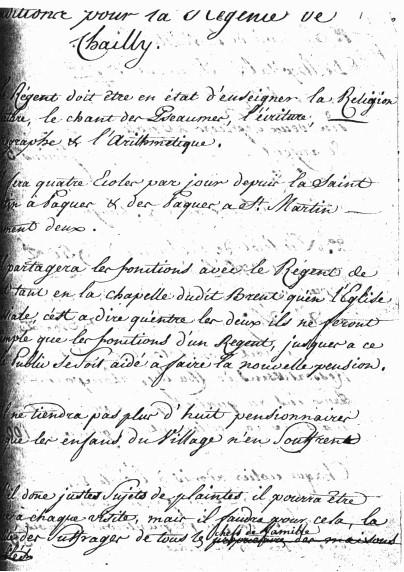 pour la Regence de
Chailly.
Regent doit être en état d'enseigner la Religion
le chant des Pseaumes, l'écriture,
ographe & l'Arithmetique.
fera quatre Ecoles par jour depuis la Saint
tin à Paques & des Paques a St. Martin
ment deux.
partagera les fonctions avec le Regent de
tant en la chapelle dudit Brent qu'en l'Eglise
c'est a dire qu'entre les deux ils ne feront
mple que les fonctions d'un Regent, jusques a ce
Public se soit aidé a faire la nouvelle pension.
ne tiendra pas plus d'huit pensionnaires
que les enfans du Village n'en Souffrent
donc justes Sujets de plaintes il pourra être
a chaque visite, mais il faudra pour cela, la
des Suffrages de tous les chefs de famille des maisons